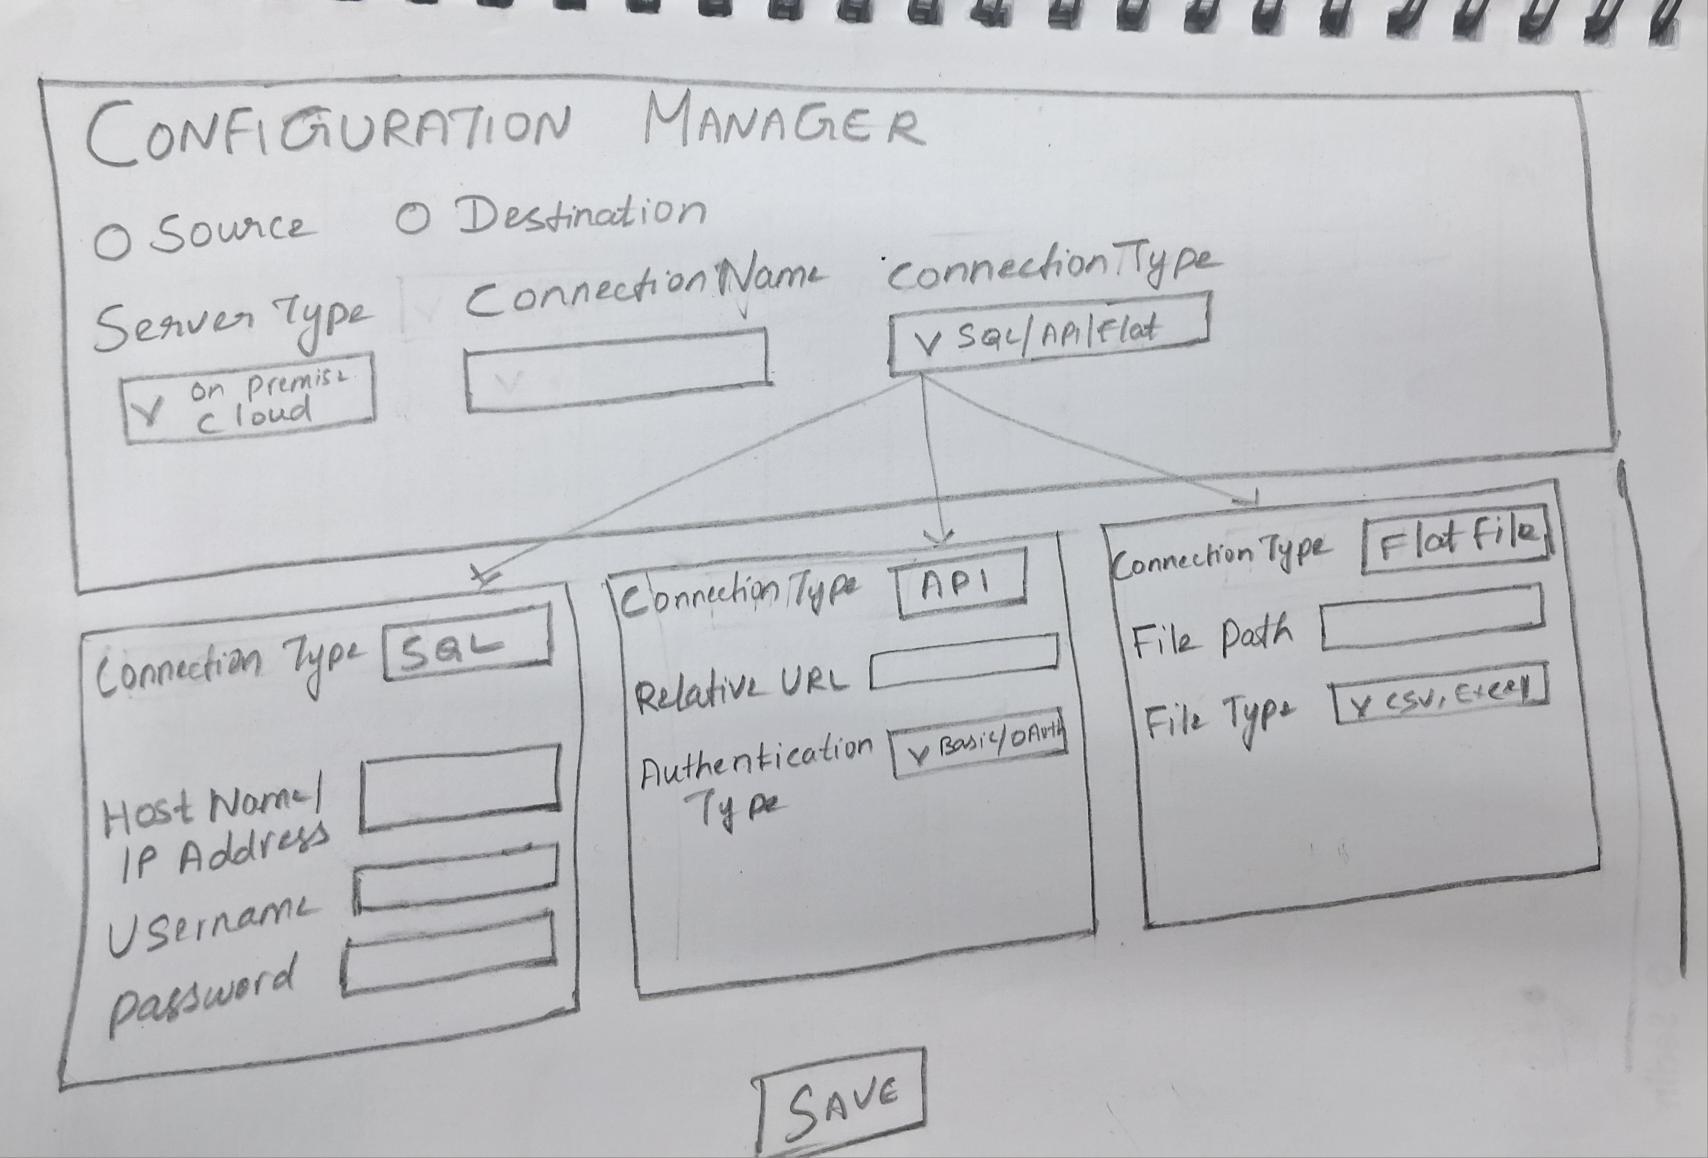 CONFIGURATION MANAGER
Source Destination
Server Type Connection Name Connection Type
On Premise
Cloud
SQL/API/Flat
Connection Type SQL
Host Name/
IP Address
Username
Password
Connection Type API
Relative URL
Authentication Basic/OAuth
Type
Connection Type Flat File
File Path
File Type CSV, Excel
SAVE